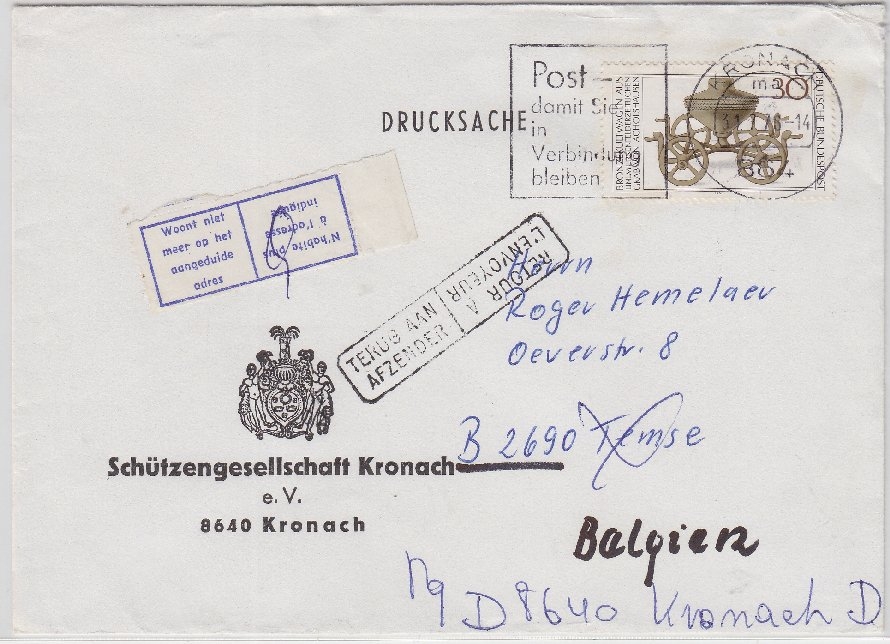 DRUCKSACHE
Post –
damit Sie
in
Verbindung
bleiben
KRONACH
ma
864
30
DEUTSCHE BUNDESPOST
BRONZEKULTWAGEN AUS
GRAB VON ACHOLSHAUSEN
Woont niet
meer op het
aangeduide
adres
N'habite plus
à l'adresse
indiquée
TERUG AAN
AFZENDER
RETOUR A
L'ENVOYEUR
Herrn
Roger Hemelaer
Oeverstr. 8
B 2690 Temse
Belgien
Schützengesellschaft Kronach
e. V.
8640 Kronach
D 8640 Kronach D